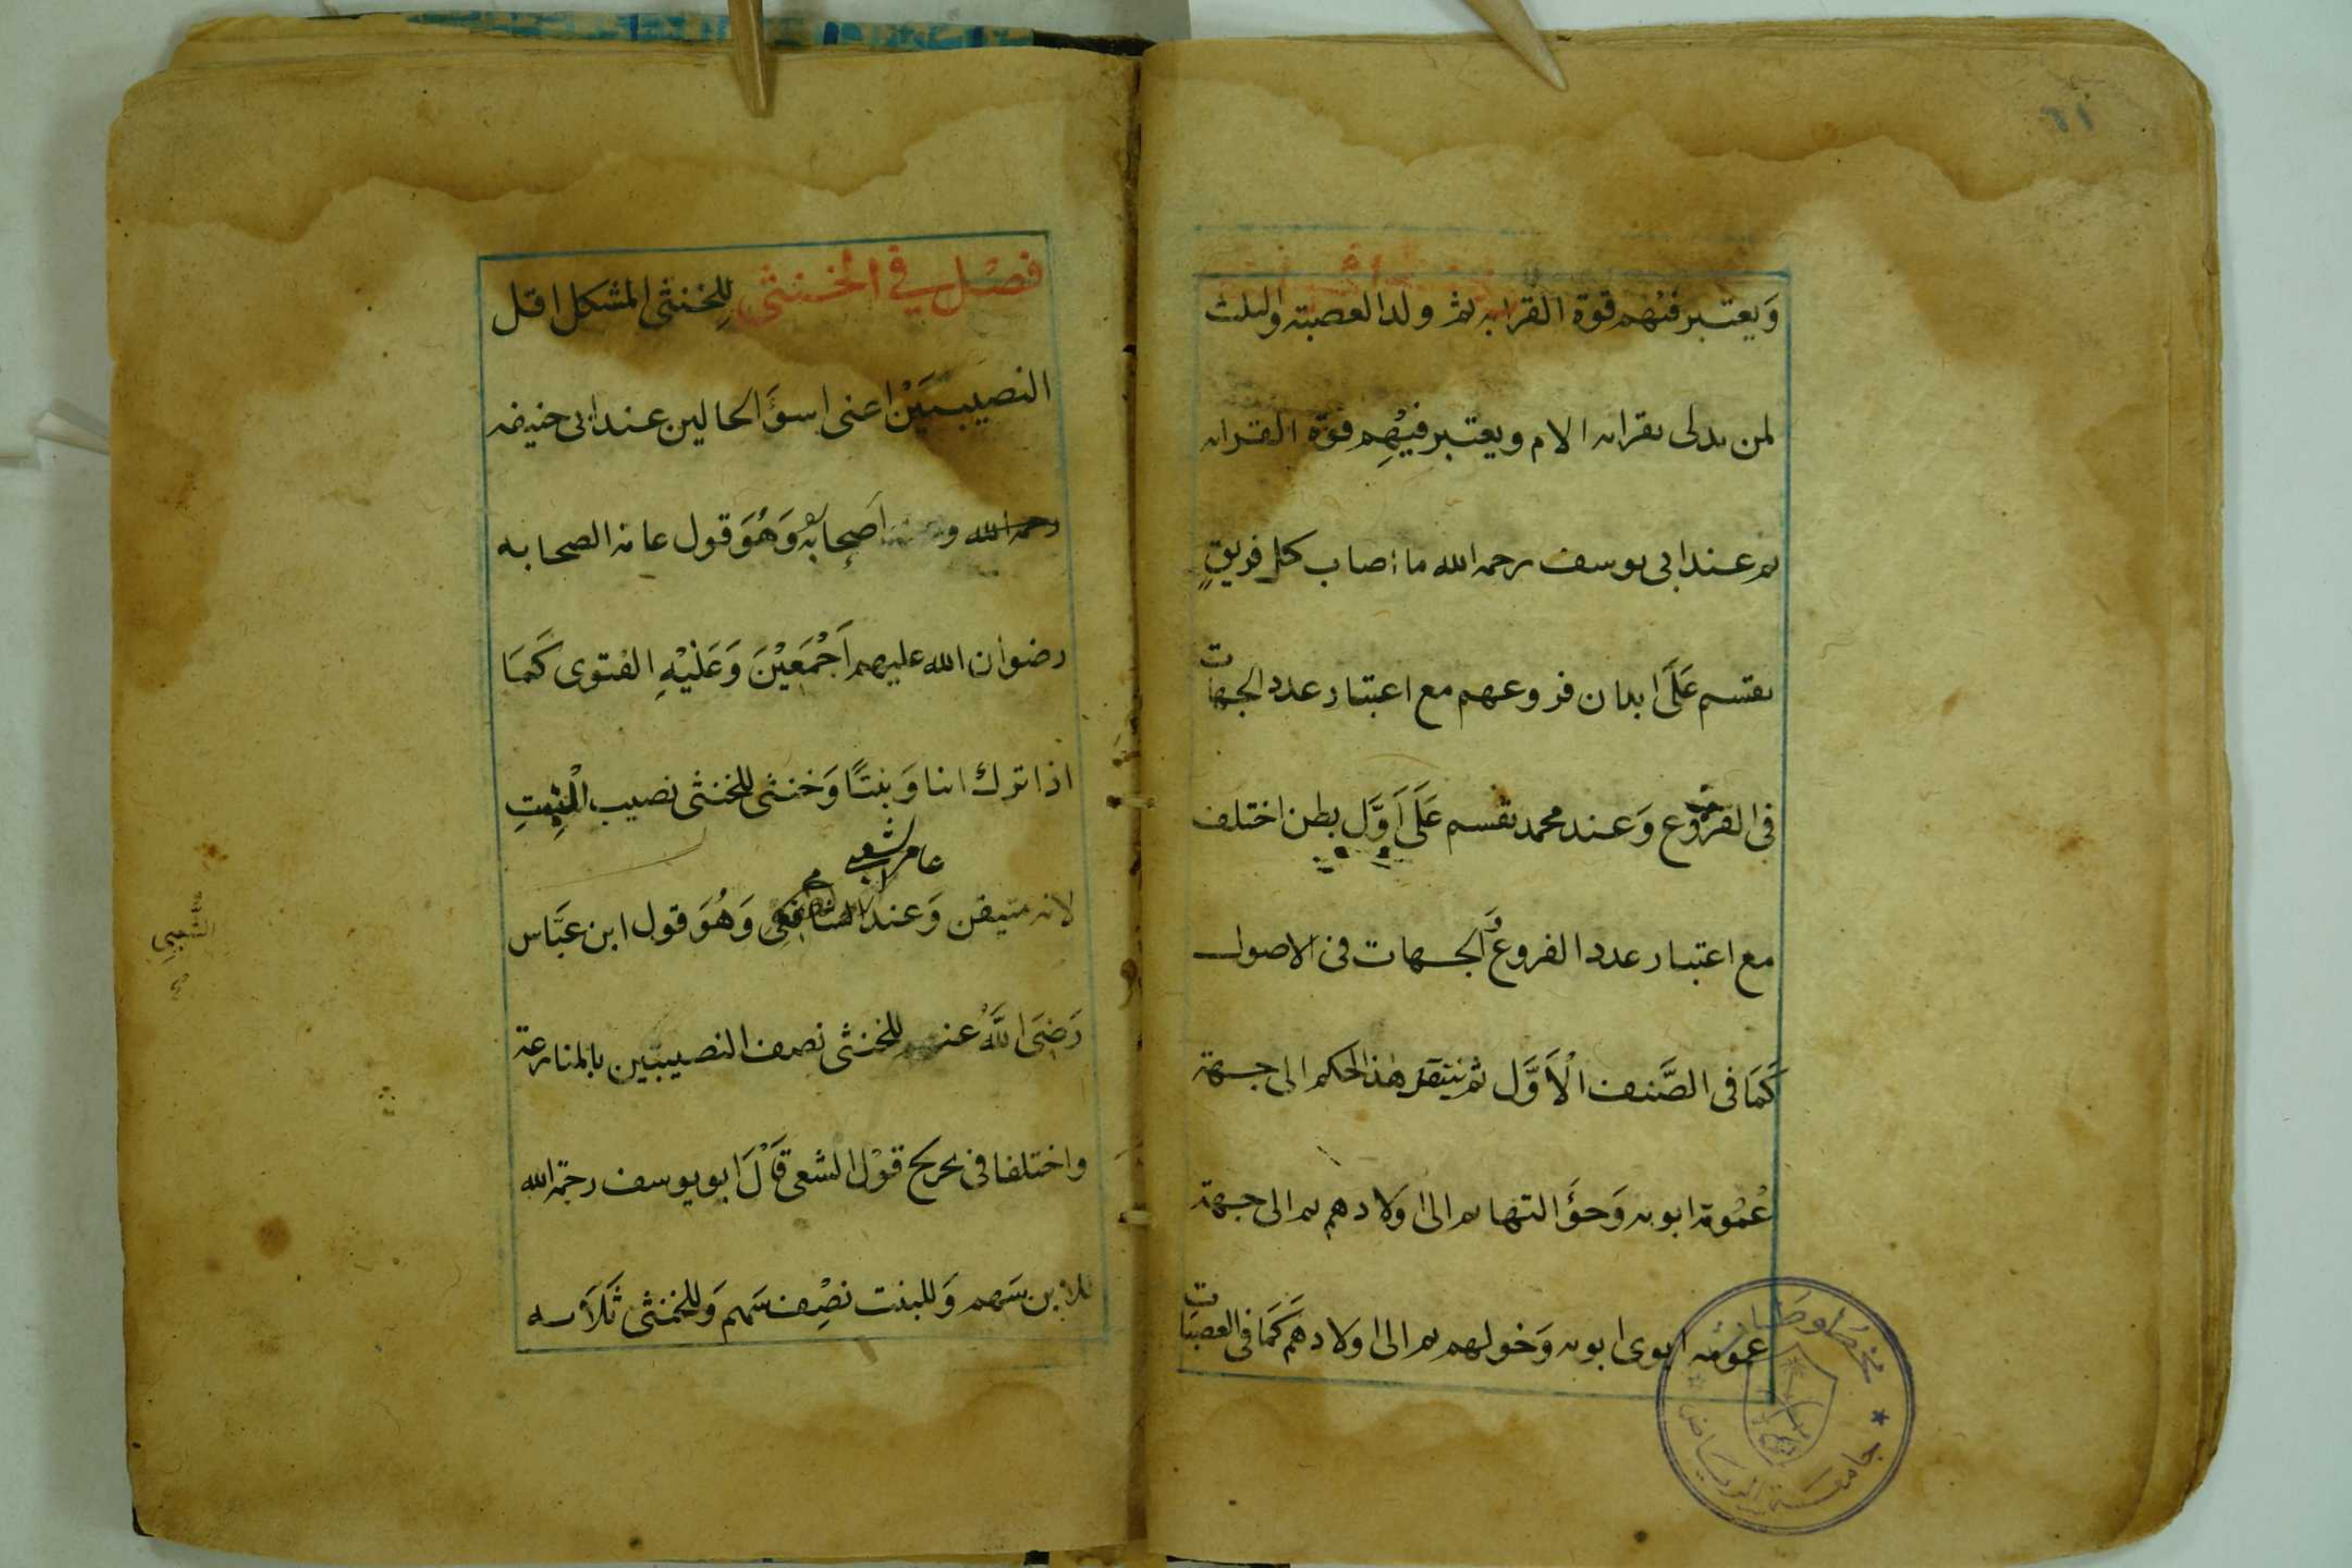 ٦١
وَيعتبر فيْهم قوة القرابه ثم ولد العصبته والثلث
لمن يدلى بقرابه الام ويعتبر فيْهِم قوّة القرابه
ثم عند ابى يوسف رحمه الله ما اصاب كل فريقٍ
يقسم عَلَى ابدان فروعهم مع اعتبار عدد الجهات
فى الفروع وَعند محمد يقسم عَلَى اَوَّلِ بطن اختلف
مع اعتبار عدد الفروع وَالجهات فى الاصول
كَمَا فى الصَّنف الْاَوَّل ثم ينتقل هذا لحكم الى جهة
عُمُومة ابويه وَخؤَالتهما ثم الى اولادهم ثم الى جهة
عمومه ابوى ابويه وَخولهم ثم الى اولادهم كَمَا فى العصبَات
مخطوطات
جامعة الرياض
فصْل في الخنثى للِخنثى المشكل اقل
النصيبيَنْ اعنى اسؤَ الحالين عند ابى حنيفه
رحمه الله و اَصحابه وَهُوَ قول عامة الصحابه
رضوان الله عليهم اَجْمَعِيْنَ وَعَلَيْهِ الفتوى كَمَا
اذا ترك ابنا وَ بنتًا وَخنثى للخنثى نصيب الْبِنتِ
عامر الشعبى
لانه متيقن وَعند وَهُوَ قول ابن عبَّاس
رَضِىَ اللَّهُ عنهم للخنثى نصف النصيبين بالمنازعة
واختلفا فى تخريج قوْل الشعبى قَالْ ابو يوسف رحمة الله
للابن سَهم وَللبنت نصْف سَهم وَللخنثى ثَلَاثه
الشعبىِ